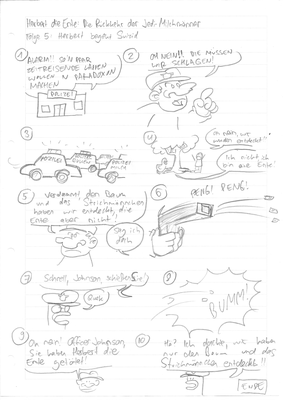 Herbert die Ente: Die Rückkehr der Jedi-Milchmänner
Folge 5: Herbert begeht Suizid
1
ALARM!! SO'N PAAR
ZEITREISENDE LAMEN
WOLLEN 'N PARADOXON
MACHEN
POLIZEI
2
OH NEIN!!! DIE MÜSSEN
WIR SCHLAGEN!
3
POLIZEI
POLIZEI
POLIZEI
4
Oh nein, wir
wurden entdeckt!
Ich nicht, ich
bin eine Ente!
5
Verdammt, den Baum
und das Strichmännchen
haben wir entdeckt, die
Ente aber nicht!
Sag ich
doch
6
PENG! PENG!
7
Schnell, Johnson, schießen Sie!
Quak
8
BUMM!
9
Oh nein! Officer Johnson,
Sie haben Herbert die
Ente getötet!
10
Hä? Ich dachte, wir haben
nur den Baum und das
Strichmännchen entdeckt!!
ENDE